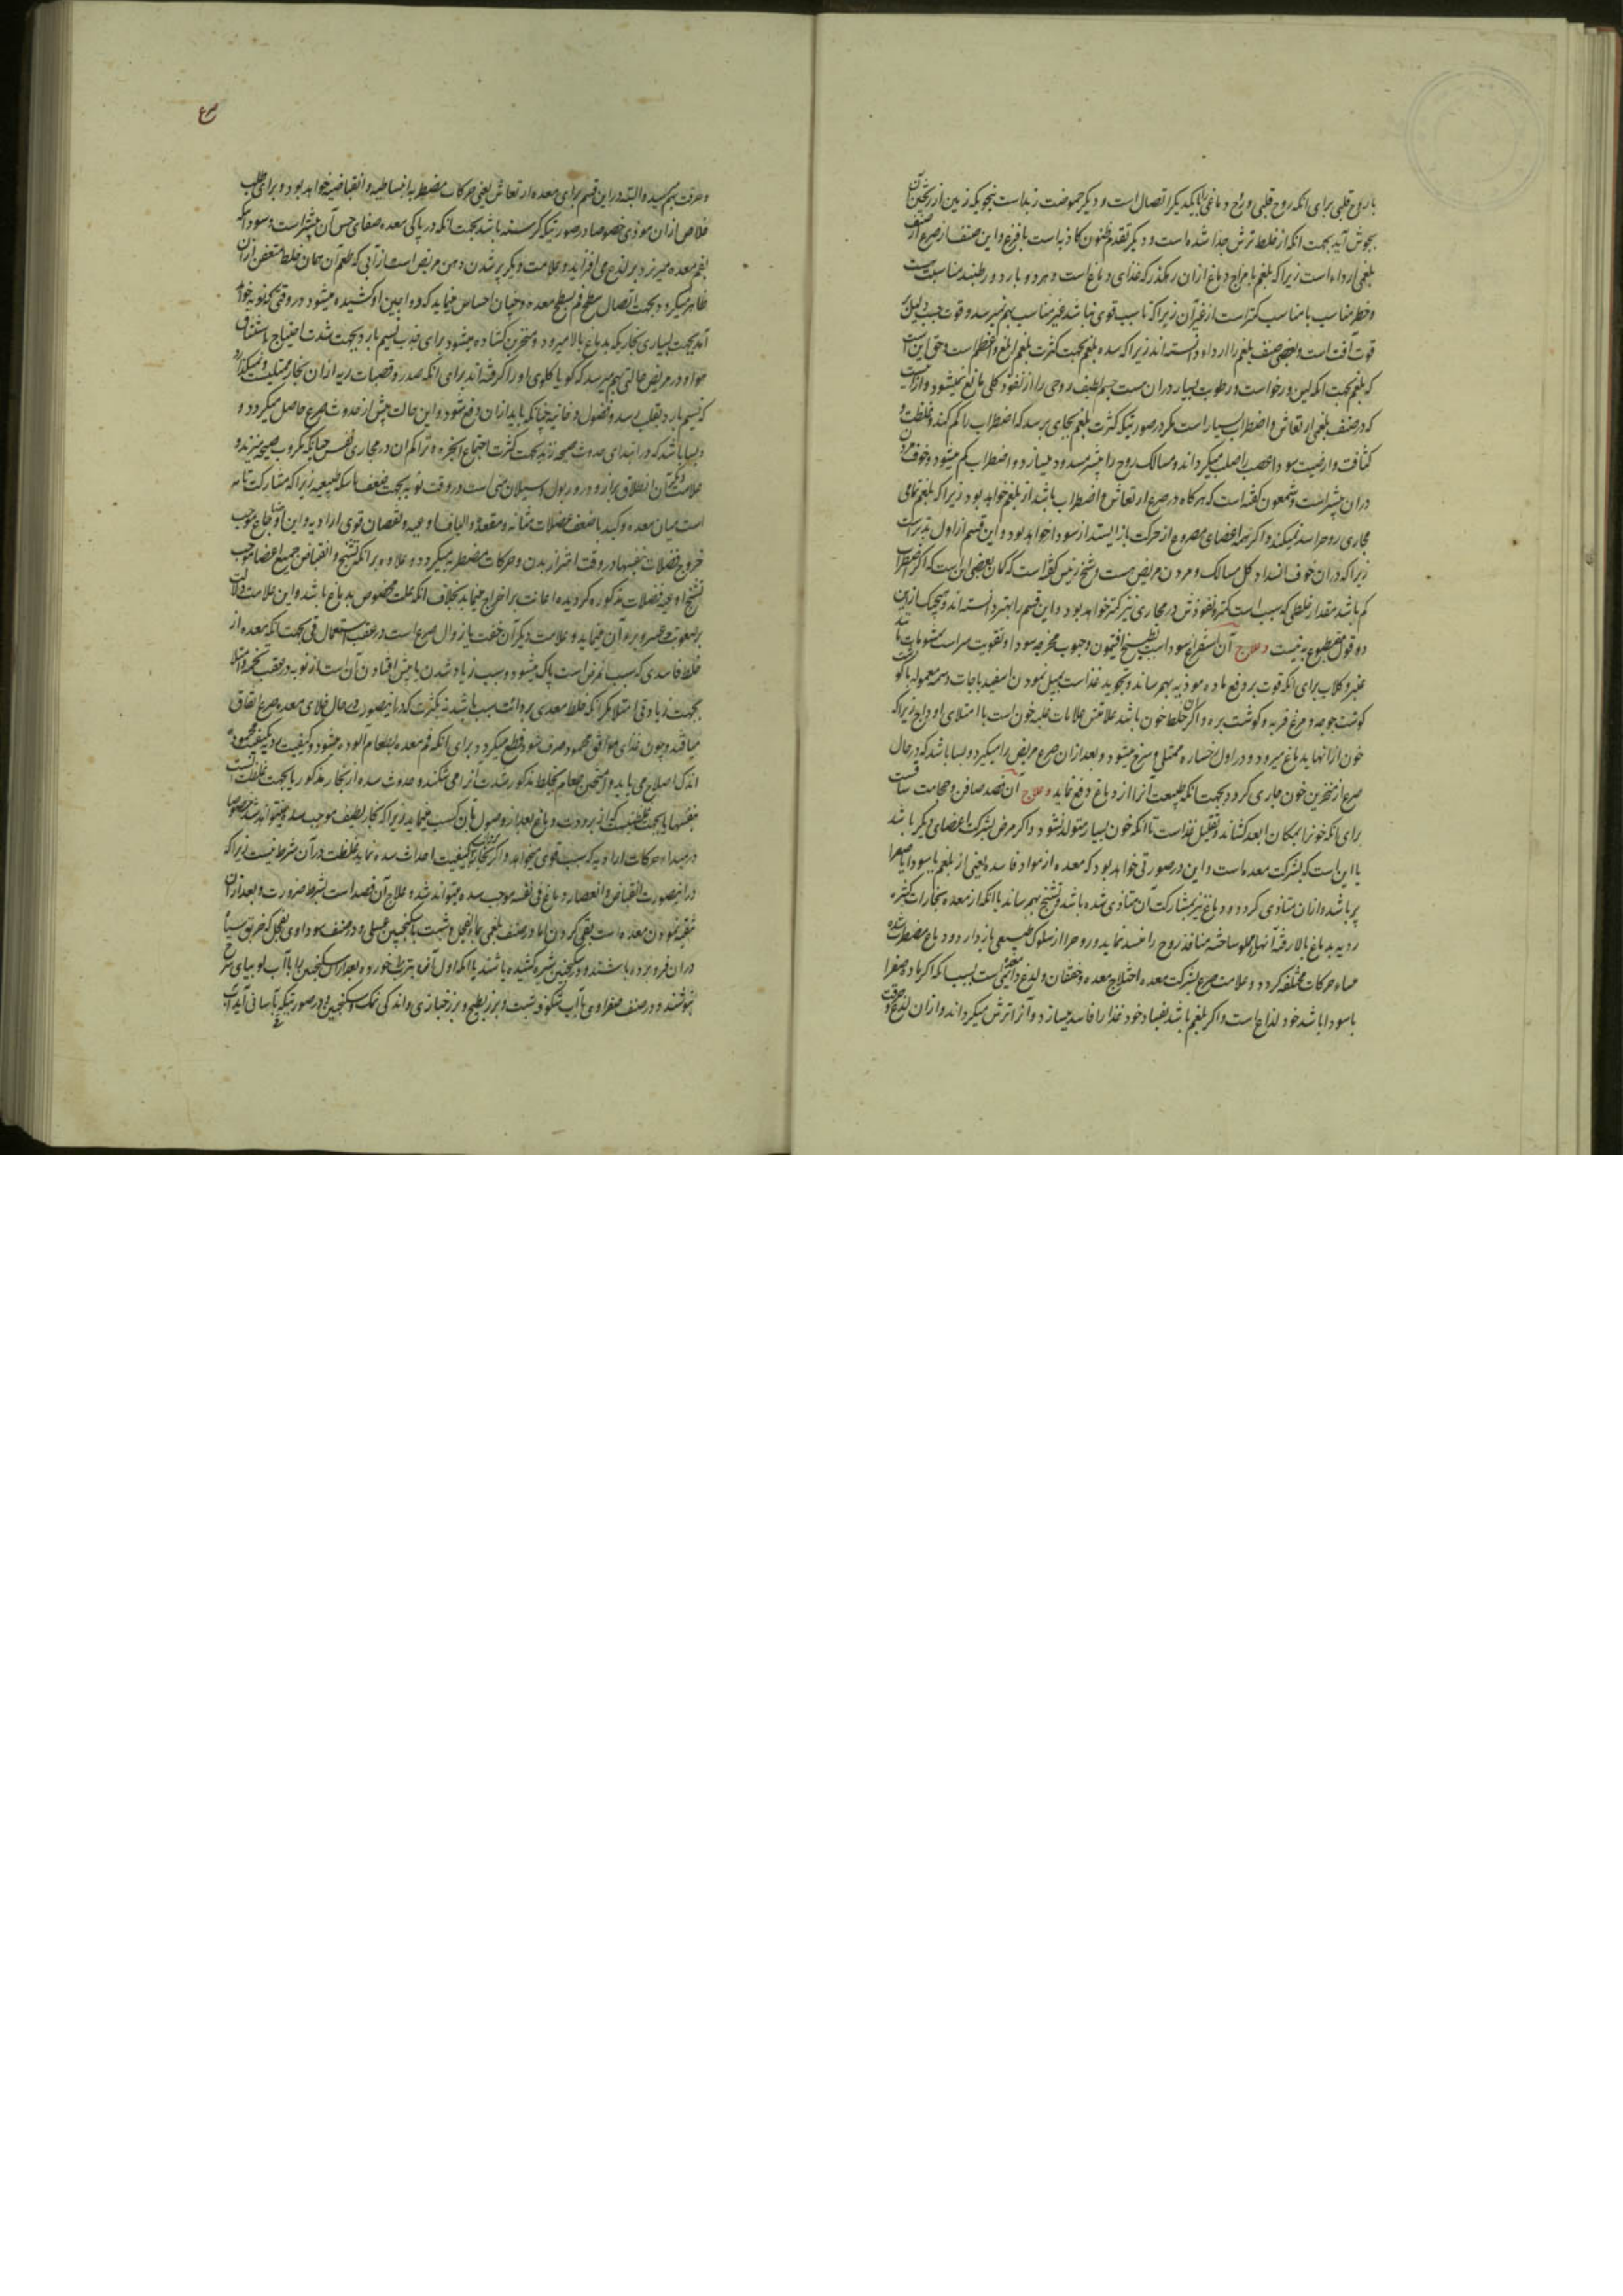 با روح قلبی برای انکه روح قلبی و روح دماغی را بایکدیکر اتصال است و دیکر حموضت زبد است بنحویکه زمین از ریختن آن
بجوش آید بجهت انکه از خلط ترش جدا شده است و دیکر تقدم ظنون کاذبه است با فزع و این صنف از صرع از صنف
بلغمی اردا است زیرا که بلغم با مزاج دماغ ازان رهکذر که غذای دماغ است و هر دو بارد و رطبند مناسبت هست
و خطر مناسب با مناسب کمتر است از غیر آن زیرا که تا سبب قوی نباشد غیر مناسب بهم نمیرسد و قوت سبب دلیل بر
قوت آفت است و بعضی صنف بلغم را اردا دانسته اند زیرا که سده بلغم بجهت کثرت بلغم ابلغ و اعظم است و حق این است
که بلغم بجهت انکه لین و رخو است و رطوبت بسیار دران هست جسم لطیف روحی را از نفوذ کلی مانع نمیشود و ازانست
که در صنف بلغمی ارتعاش و اضطراب بسیار است مکر در صورتیکه کثرت بلغم بجای برسد که اضطراب را کم کند و غلظت و
کثافت و ارضیت سودا عصب را صلب میکرداند و مسالک روح را بیشتر مسدود میسازد و اضطراب کم میشود و خوف مردن
دران بیشتر است و شمعون کفته است که هرکاه در صرع ارتعاش و اضطراب باشد از بلغم خواهد بود زیرا که بلغم تمامی
مجاری روح را سد نمیکند و اکر همه اعضای مصروع از حرکت باز ایستد از سودا خواهد بود و این قسم از اول بدتر است
زیرا که دران خوف انسداد کل مسالک و مردن مریض هست و شیخ رئیس کفته است که کمان بعضی این است که اکر اضطراب
کم باشد مقدار خلطی که سبب است کمتر و نفوذش در مجاری نیز کمتر خواهد بود و این قسم را بهتر دانسته اند و هیچیک ازین
دو قول مقطوع به نیست و علاج آن استفراغ سودا است بطبیخ افتیمون و حبوب مخرجه سودا و تقویت سر است بمشمومات مانند
عنبر و کلاب برای انکه قوت بر دفع ماده موذیه بهم رساند و تجوید غذا است بمیل نمودن اسفید باجات دسمه معموله با کو
کوشت جوجه و مرغ فربه و کوشت بره و اکر خلط خون باشد علامتش علامات غلبه خون است با امتلای اوداج زیرا که
خون ازانها بدماغ میرود و در اول رخساره ممتلی و سرخ میشود و بعد ازان صرع مریض را میکیرد و بسا باشد که در حال
صرع از منخرین خون جاری کردد بجهت انکه طبیعت آنرا از دماغ دفع نماید و علاج آن فصد صافن و حجامت ساقست
برای انکه خونرا بمکان ابعد کشاند و تقلیل غذا است تا انکه خون بسیار متولد نشود و اکر مرض بشرکت اعضای دیکر باشد
یا این است که بشرکت معده است و این در صورتی خواهد بود که معده از مواد فاسده یعنی از بلغم یا سودا یا صفرا
پر باشد و ازان متاذی کردد و دماغ نیز بمشارکت آن متاذی شده باشد و تشنج بهم رساند یا انکه از معده بخارات کثیره
ردیه بدماغ بالا رفته آنها مملو ساخته منافذ روح را منسد نماید و روح را از سلوک طبیعی باز دارد و دماغ مضطرب شده
مبداء حرکات مختلفه کردد و علامت صرع بشرکت معده اختلاج معده و خفقان و لذع دایمی است بسبب انکه اکر ماده صفرا
یا سودا باشد خود لذاع است و اکر بلغم باشد بفساد خود غذا را فاسد میسازد و آنرا ترش میکرداند و ازان لذع و حرقت
صرع
و حرقت بهم میرسد و البته در این قسم برای معده ارتعاش یعنی حرکات مضطربه انبساطیه و انقباضیه خواهد بود و برای طلب
خلاص ازان موذی خصوصا در صورتیکه کرسنه باشد بجهت انکه در پاکی معده صفای حس آن بیشتر است و سودا که
بفم معده میریزد بر لذع می افزاید و علامت دیکر پر شدن دهن مریض است از آبی که طعم آن همان خلط متعفن ازان
ظاهر میکردد بجهت اتصال سطح فم بسطح معده و چنان احساس مینماید که وداجین او کشیده میشود در وقتی که نوبه خواهد
آمد بجهت بسیاری بخاریکه بدماغ بالا میرود و منخرین کشاده میشود برای جذب نسیم بارد بجهت شدت احتیاج باستنشاق
هوا و در مریض حالتی بهم میرسد که کویا کلوی او را کرفته اند برای انکه صدر و قصبات ریه ازان بخار ممتلیست و نمیکذارد
که نسیم بارد بقلب رسد و فضول دخانیه چنانکه باید ازان دفع شود و این حالت پیش از حدوث صرع حاصل میکردد و
بسا باشد که در ابتدای حدوث صیحه زند بجهت کثرت اجتماع ابخره و تراکم ان در مجاری نفس چنانکه مکروب صیحه میزند و
علامت دیکر آن انطلاق براز و ادرار بول و سیلان منی است در وقت نوبه بجهت ضعف ماسکه طبیعیه زیرا که مشارکت تامه
است میان معده و کبد با ضعف عضلات مثانه و مقعد و الیاف اوعیه و نقصان قوی ارادیه و این اوجاع موجب
خروج فضلات بنفسها در وقت اهتزاز بدن و حرکات مضطربه میکردد و علاوه بر انکه تشنج و انقباض جمیع اعضا موجب
تشنج اوعیه فضلات مذکوره کردیده اعانت بر اخراج مینماید بخلاف انکه علت مخصوص بدماغ باشد و این علامت دلالت
بر صعوبت و عسر برء آن مینماید و علامت دیکر آن خفت یا زوال صرع است در عقب استعمال قی بجهت انکه معده از
خلط فاسدی که سبب مرض است پاک میشود و سبب زیاد شدن یا پیش افتادن آن است از نوبه در عقب تخمه و امتلا
بجهت زیادتی امتلا مکر انکه خلط معدی بردائت سبب باشد نه بکثرت که در اینصورت در حال خلای معده صرع اتفاق
میافتد و چون غذای موافق محمود صرف شود قطع میکردد برای انکه فم معده بطعام آلوده میشود و کیفیت ردیه بکیفیت محموده
اندک اصلاح می یابد و آمیختن طعام بخلط مذکور شدت آنرا می شکند و حدوث سده از بخار مذکور یا بجهت غلظت است
بنفسها یا بجهت غلظتیست که از برودت دماغ بعد از وصول بآن کسب مینماید زیرا که بخار لطیف موجب سده نمیتواند شد خصوصا
در مبداء حرکات ارادیه که سبب قوی میخواهد و اکر بخارات بردائت کیفیت احداث سده نماید غلظت در آن شرط نیست زیرا که
در اینصورت انقباض و انعصار دماغ فی نفسه موجب سده میتواند شد و علاج آن فصد است بشرط ضرورت و بعد ازان
تنقیه نمودن معده است بقی کردن اما در صنف بلغمی بماء الفجل و شبت با سکنجبین عسلی و در صنف سوداوی بفجل که خربق سیاه
دران فرو برده باشند و در سکنجبین شیره کشیده باشند یا انکه اول آنرا خورده بعد ازان سکنجبین را با آب لوبیای سرخ
نوشند و در صنف صفراوی با آب شکوفه شبت و بزر بطیخ و بزر خبازی و اندکی نمک و سکنجبین و در صورتیکه بآسانی آید